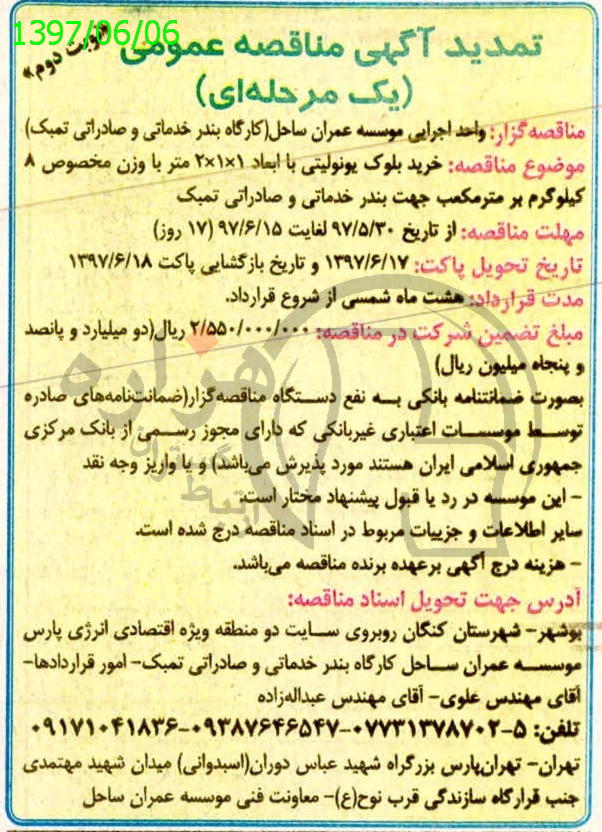 1397/06/06
«نوبت دوم»
تمدید آگهی مناقصه عمومی
(یک مرحله‌ای)
مناقصه‌گزار: واحد اجرایی موسسه عمران ساحل(کارگاه بندر خدماتی و صادراتی تمبک)
موضوع مناقصه: خرید بلوک یونولیتی با ابعاد ۱×۱×۲ متر با وزن مخصوص ۸
کیلوگرم بر مترمکعب جهت بندر خدماتی و صادراتی تمبک
مهلت مناقصه: از تاریخ ۹۷/۵/۳۰ لغایت ۹۷/۶/۱۵ (۱۷ روز)
تاریخ تحویل پاکت: ۱۳۹۷/۶/۱۷ و تاریخ بازگشایی پاکت ۱۳۹۷/۶/۱۸
مدت قرارداد: هشت ماه شمسی از شروع قرارداد.
مبلغ تضمین شرکت در مناقصه: ۲/۵۵۰/۰۰۰/۰۰۰ ریال(دو میلیارد و پانصد
و پنجاه میلیون ریال)
بصورت ضمانتنامه بانکی به نفع دستگاه مناقصه‌گزار(ضمانت‌نامه‌های صادره
توسط موسسات اعتباری غیربانکی که دارای مجوز رسمی از بانک مرکزی
جمهوری اسلامی ایران هستند مورد پذیرش می‌باشد) و یا واریز وجه نقد
- این موسسه در رد یا قبول پیشنهاد مختار است.
سایر اطلاعات و جزییات مربوط در اسناد مناقصه درج شده است.
- هزینه درج آگهی برعهده برنده مناقصه می‌باشد.
آدرس جهت تحویل اسناد مناقصه:
بوشهر- شهرستان کنگان روبروی سایت دو منطقه ویژه اقتصادی انرژی پارس
موسسه عمران ساحل کارگاه بندر خدماتی و صادراتی تمبک- امور قراردادها-
آقای مهندس علوی- آقای مهندس عبداله‌زاده
تلفن: ۵-۰۷۷۳۱۳۷۸۷۰۲-۰۹۳۸۷۶۴۶۵۴۷-۰۹۱۷۱۰۴۱۸۳۶
تهران- تهران‌پارس بزرگراه شهید عباس دوران(اسبدوانی) میدان شهید مهتمدی
جنب قرارگاه سازندگی قرب نوح(ع)- معاونت فنی موسسه عمران ساحل